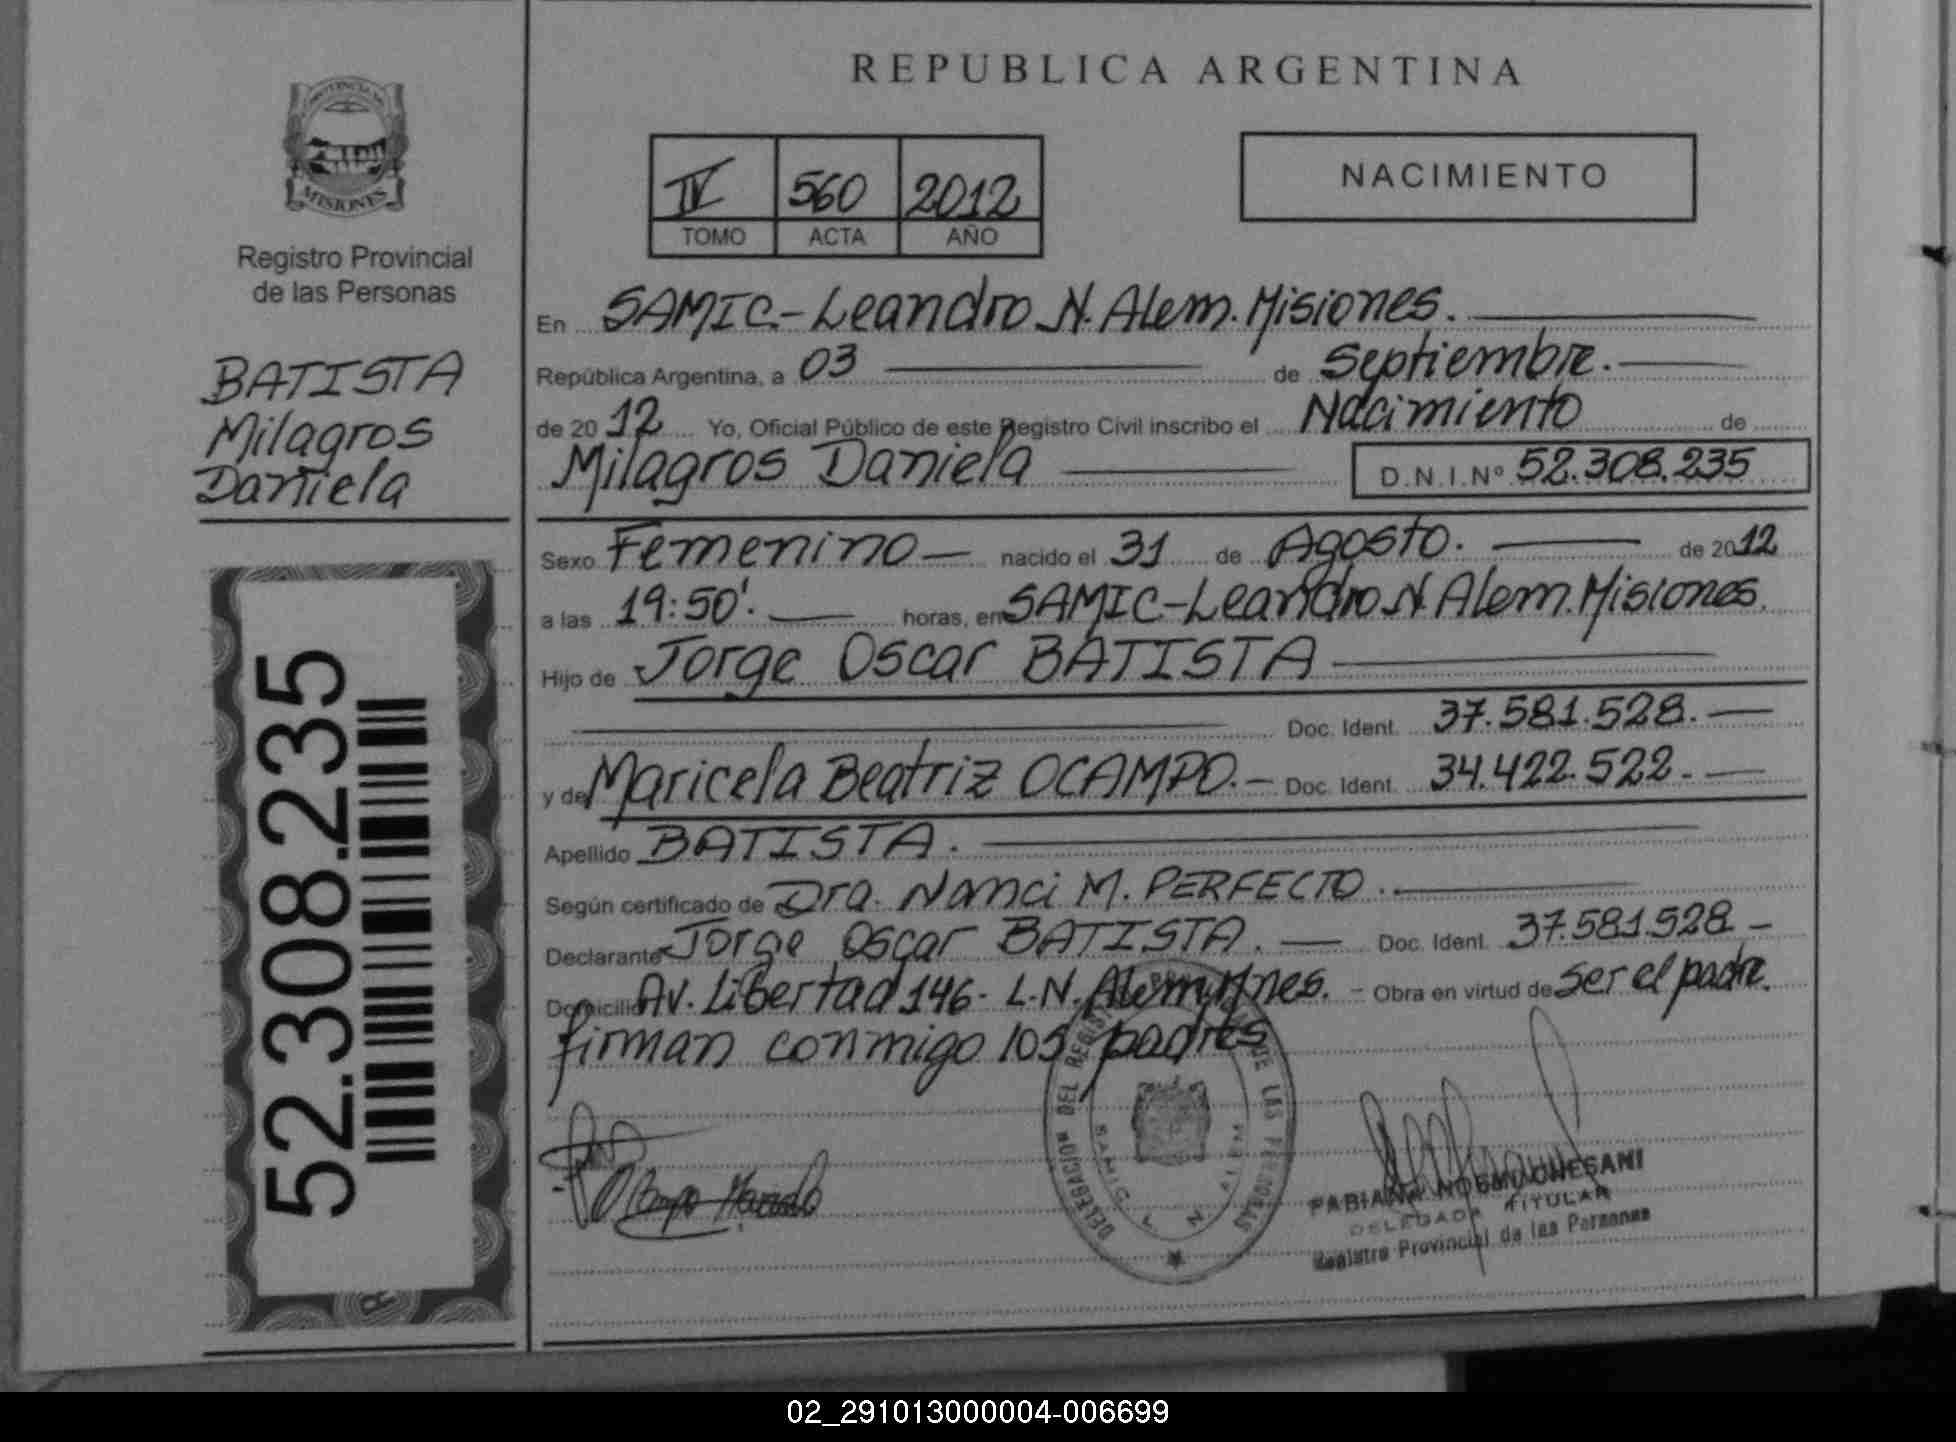 REPUBLICA ARGENTINA
PROVINCIA DE
MISIONES
Registro Provincial
de las Personas
BATISTA
Milagros
Daniela
52.308.235
IV 560 2012
TOMO ACTA AÑO
NACIMIENTO
En SAMIC-Leandro N. Alem. Misiones.
República Argentina, a 03 de Septiembre.
de 2012 Yo, Oficial Público de este Registro Civil inscribo el Nacimiento de
Milagros Daniela D.N.I.Nº 52.308.235
Sexo Femenino nacido el 31 de Agosto. de 2012
a las 19:50'. horas, en SAMIC-Leandro N. Alem. Misiones.
Hijo de Jorge Oscar BATISTA
Doc. Ident. 37.581.528.
y de Maricela Beatriz OCAMPO.- Doc. Ident. 34.422.522.
Apellido BATISTA.
Según certificado de Dra. Nanci M. PERFECTO.
Declarante Jorge Oscar BATISTA. Doc. Ident. 37.581.528-
Domicilio Av. Libertad 146- L.N. Alem, Mnes. - Obra en virtud de ser el padre.
firman conmigo los padres
DELEGACION DEL REGISTRO DE LAS PERSONAS
SAMIC L N ALEM
DELEGADA TITULAR
Registro Provincial de las Personas
02_291013000004-006699